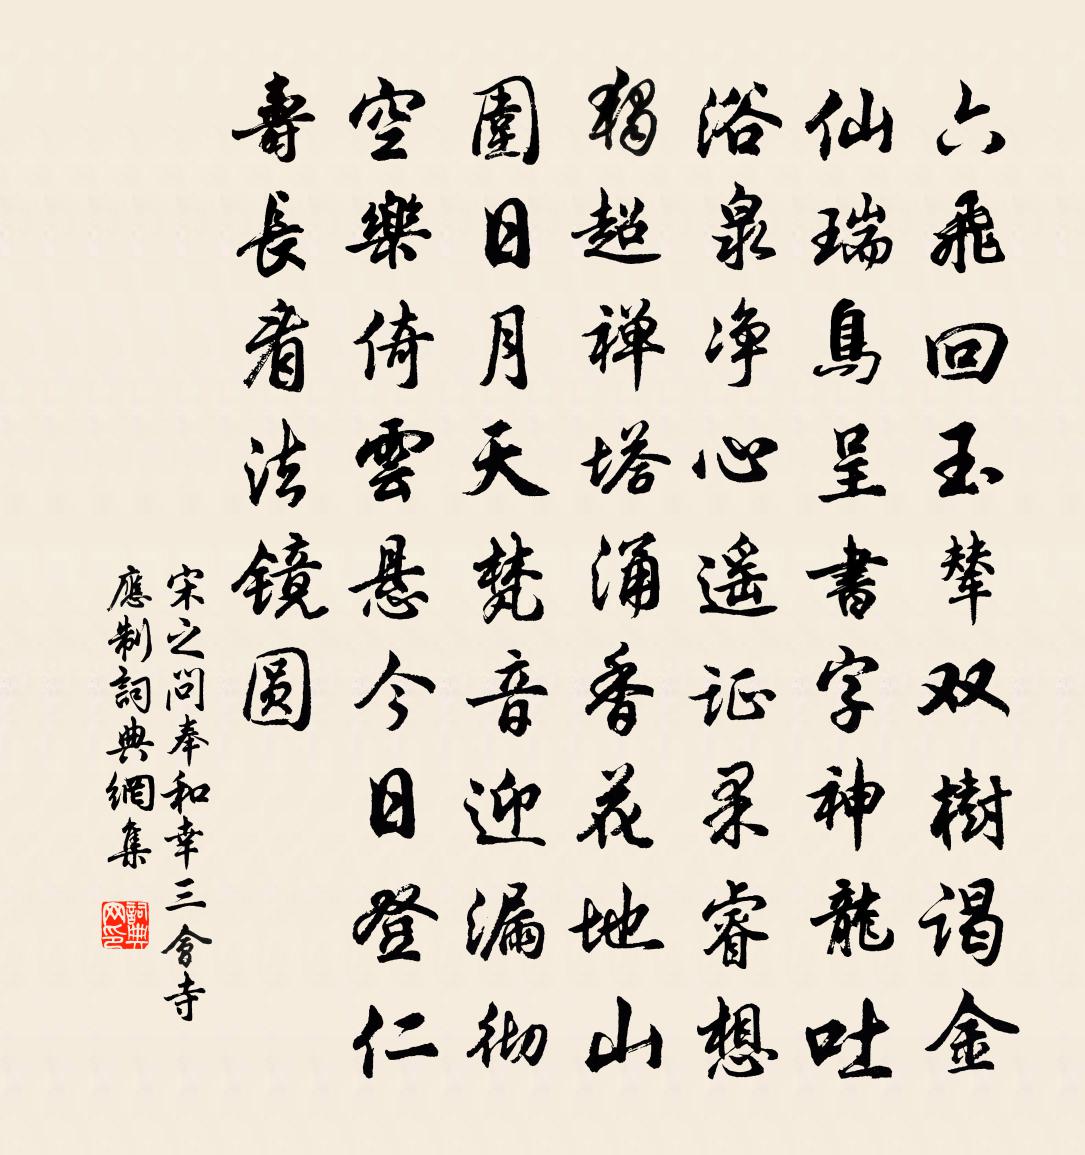 六飛回玉輦双樹谒金
仙瑞鳥呈書字神龍吐
浴泉净心遥证果睿想
獨超禅塔涌香花地山
圍日月天梵音迎漏彻
空樂倚雲悬今日登仁
壽長看法镜圆
宋之问奉和幸三會寺
應制詞典網集
詞典网印